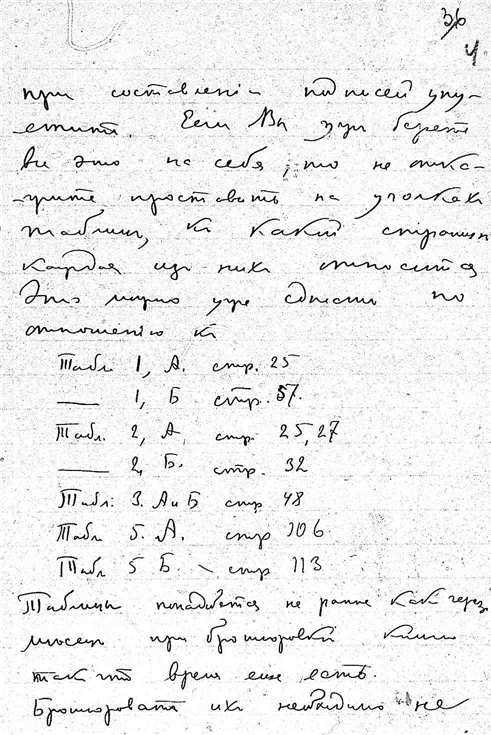 36
4
при составленiи подписей упу-
стить. Если Вы уже берете
все это на себя, то не отка-
жите проставить на уголках
таблиц, къ какой странице
каждая изъ нихъ относится
Это можно уже сделать по
отношенiю къ
Табл 1, А. стр. 25
—— 1, Б стр. 57.
Табл. 2, А, стр 25, 27
—— 2, Б. стр. 32
Табл. 3. А и Б стр 48
Табл 5. А. стр 106.
Табл 5 Б. стр 113
Таблицы понадобятся не ранее как через
месяц при брошюровке книги
так что время еще есть.
Брошюровать ихъ необходимо не